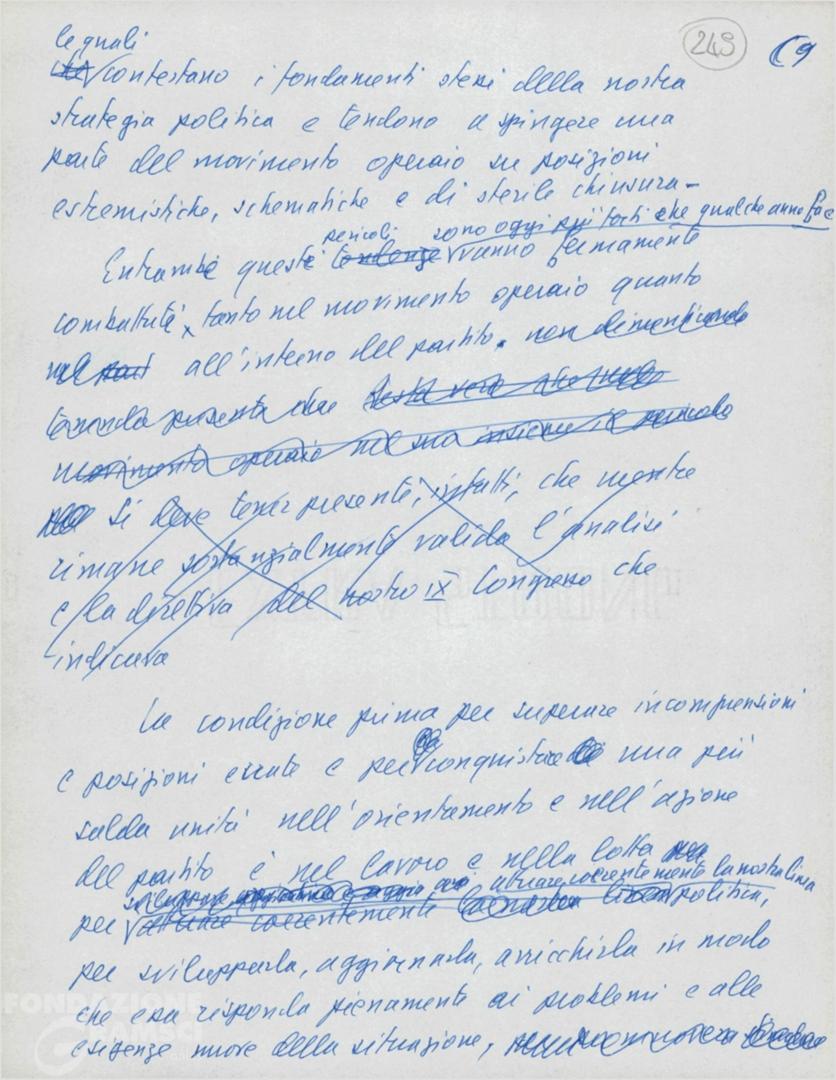 249
(9
le quali
contestano i fondamenti stessi della nostra
strategia politica e tendono a spingere una
parte del movimento operaio su posizioni
estremistiche, schematiche e di sterile chiusura-
pericoli sono oggi più forti che qualche anno fa e
Entrambi questi tendenze vanno fermamente
combattuti, tanto nel movimento operaio quanto
all'interno del partito. non dimenticando
tenendo presente che
movimento operaio nel suo insieme il pericolo
Si deve tener presente, infatti, che mentre
rimane sostanzialmente valida l'analisi
e la direttiva del nostro IX Congresso che
indicava
La condizione prima per superare incomprensioni
e posizioni errate e per conquistare una più
salda unità nell'orientamento e nell'azione
del partito è nel lavoro e nella lotta
attuare coerentemente la nostra linea
per attuare coerentemente politica,
per svilupparla, aggiornarla, arricchirla in modo
che essa risponda pienamente ai problemi e alle
esigenze nuove della situazione,
FONDAZIONE
GRAMSCI